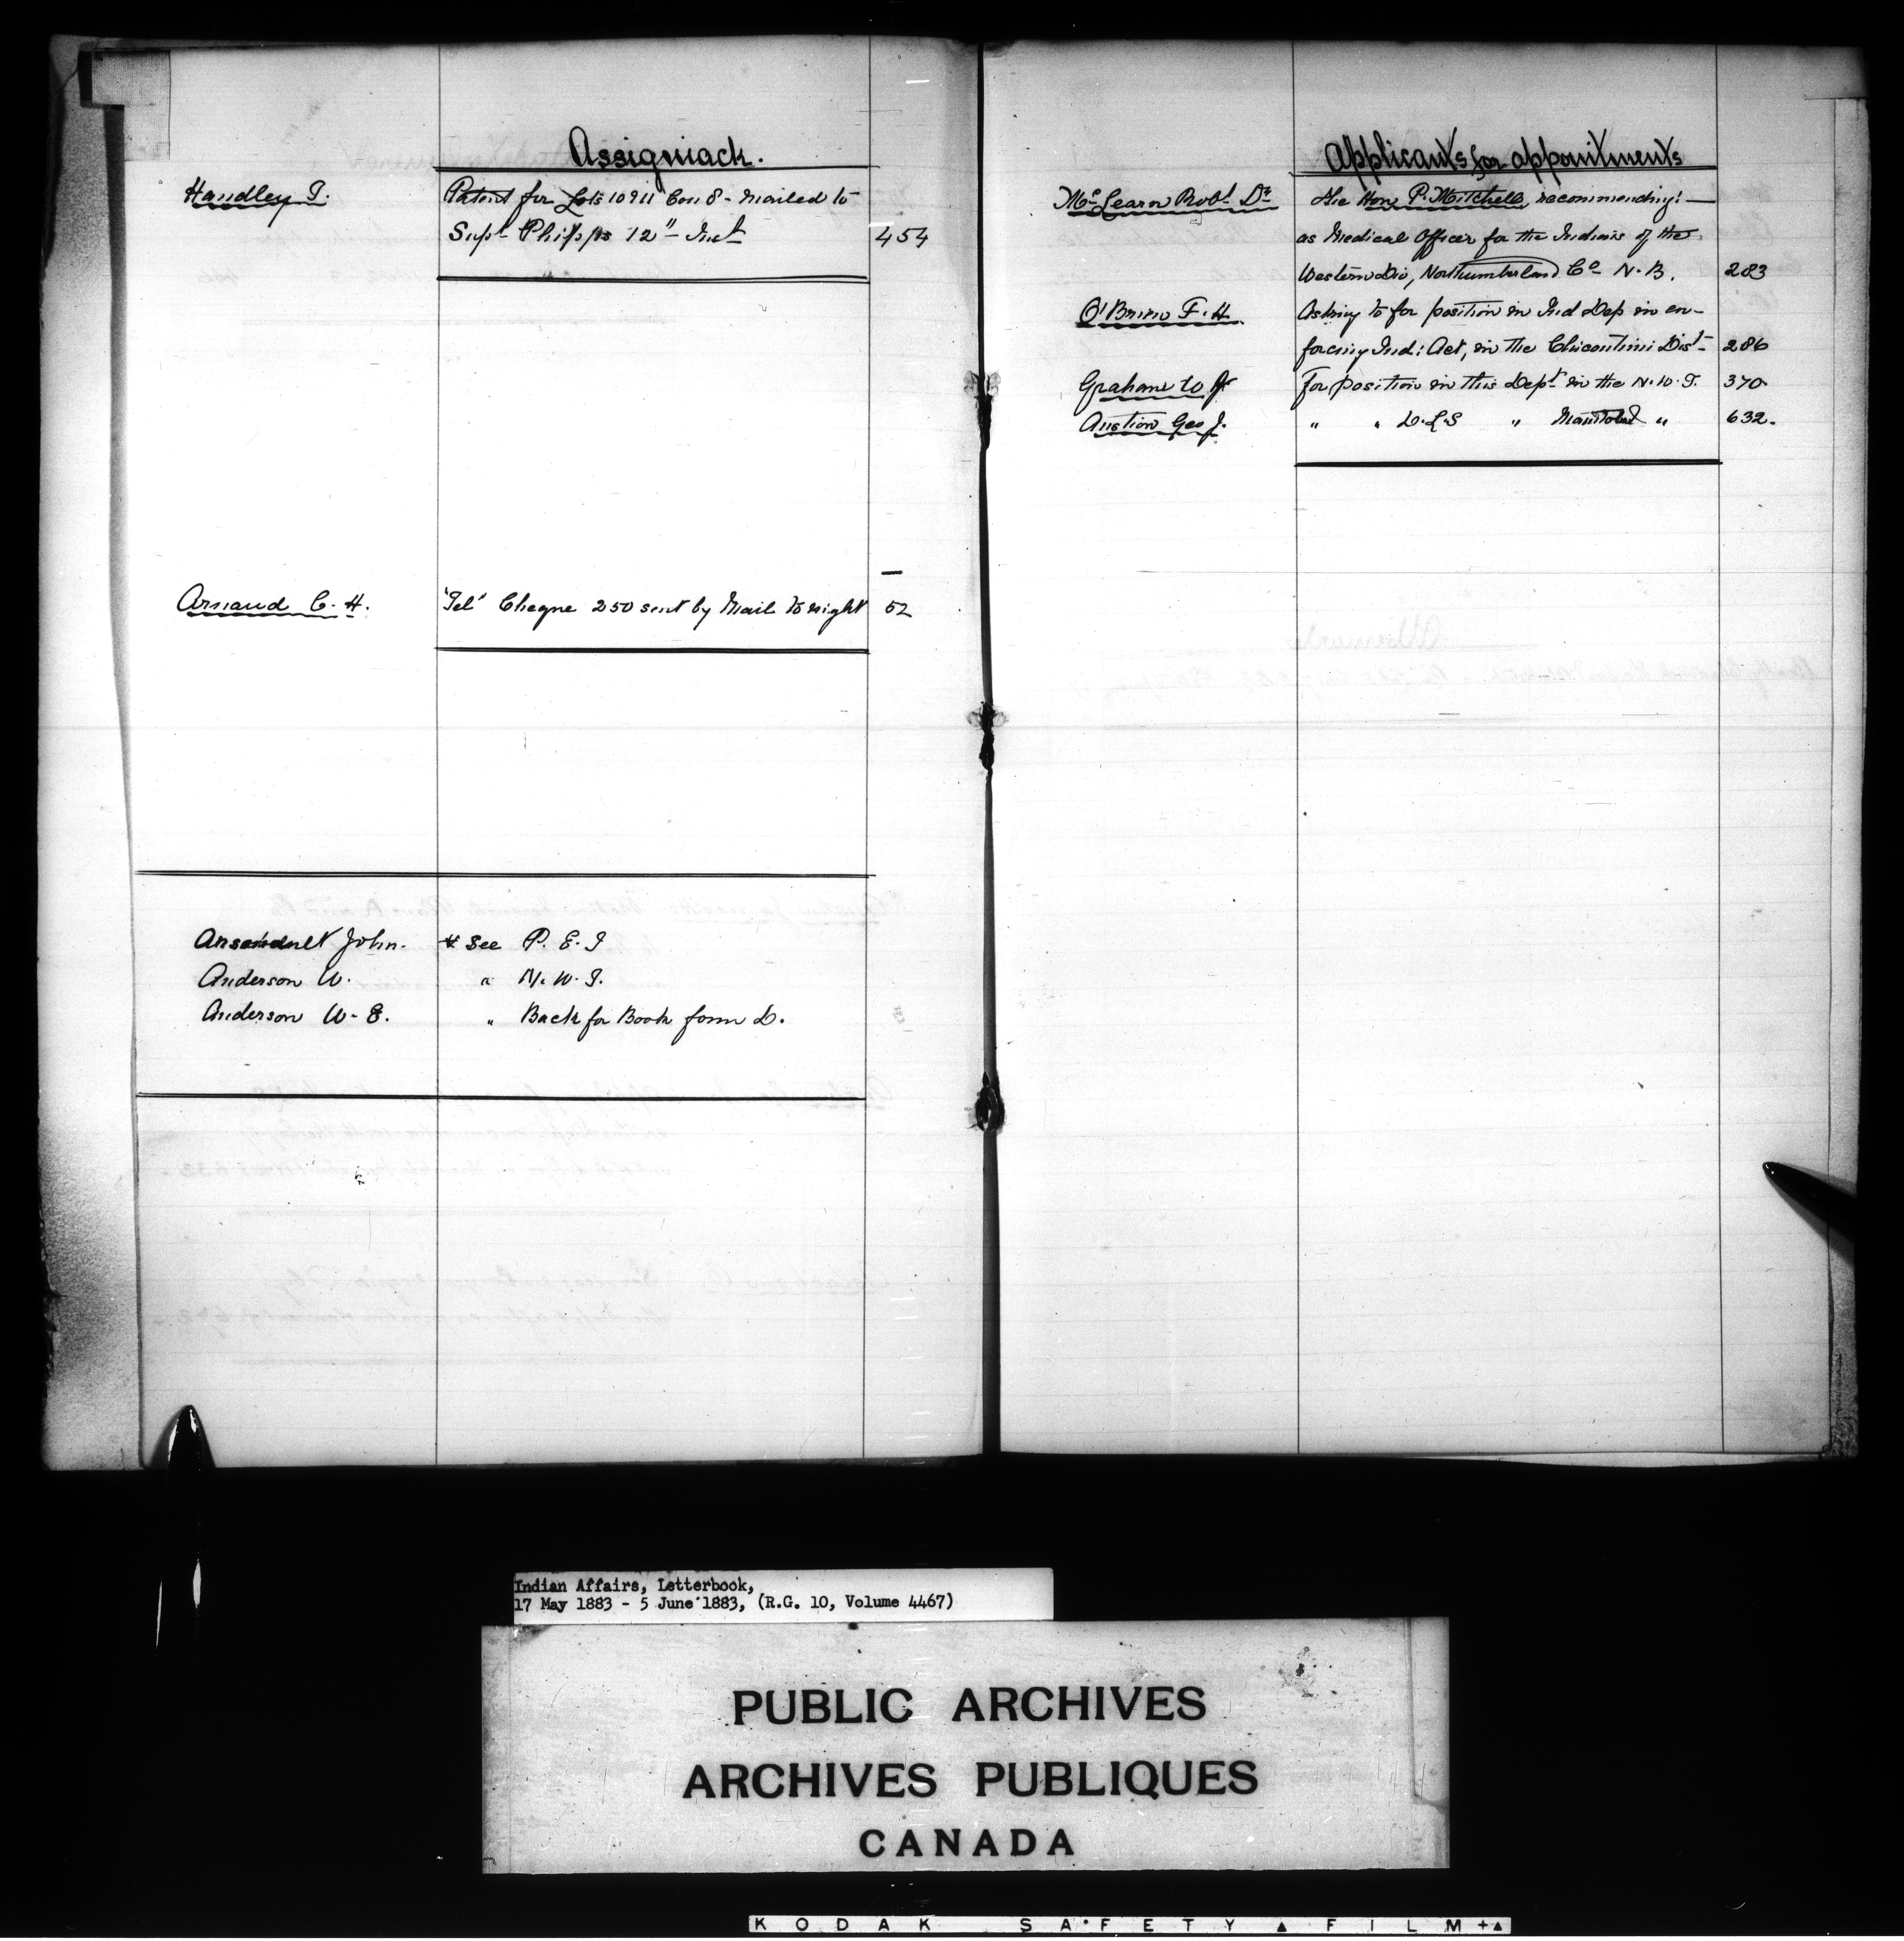 Assiginack.
Handley T. Patent for Lots 10 & 11 Con 8 - mailed to
Supt Phipps 12" Inst 454
Arnaud C. H. "Tel" Cheque 250 sent by Mail to night 52
Arsenault John. See P. E. I
Anderson W. " N. W. T.
Anderson W. E. " Back for Book form D.
Applicants for appointments
McLearn Robt Dr The Hon P. Mitchell, recommending :—
as Medical Officer for the Indians of the
Western Div, Northumberland Co N. B. 283
O'Brien F. H. Asking to for position in Ind Dep in en-
forcing Ind: Act, in the Chicoutimi Dist 286
Graham W For position in this Dept in the N. W. T. 370
Austion Geo J. " " D. L. S " Manitoba " 632.
Indian Affairs, Letterbook,
17 May 1883 - 5 June 1883, (R.G. 10, Volume 4467)
PUBLIC ARCHIVES
ARCHIVES PUBLIQUES
CANADA
KODAK SAFETY ▲ FILM +▲